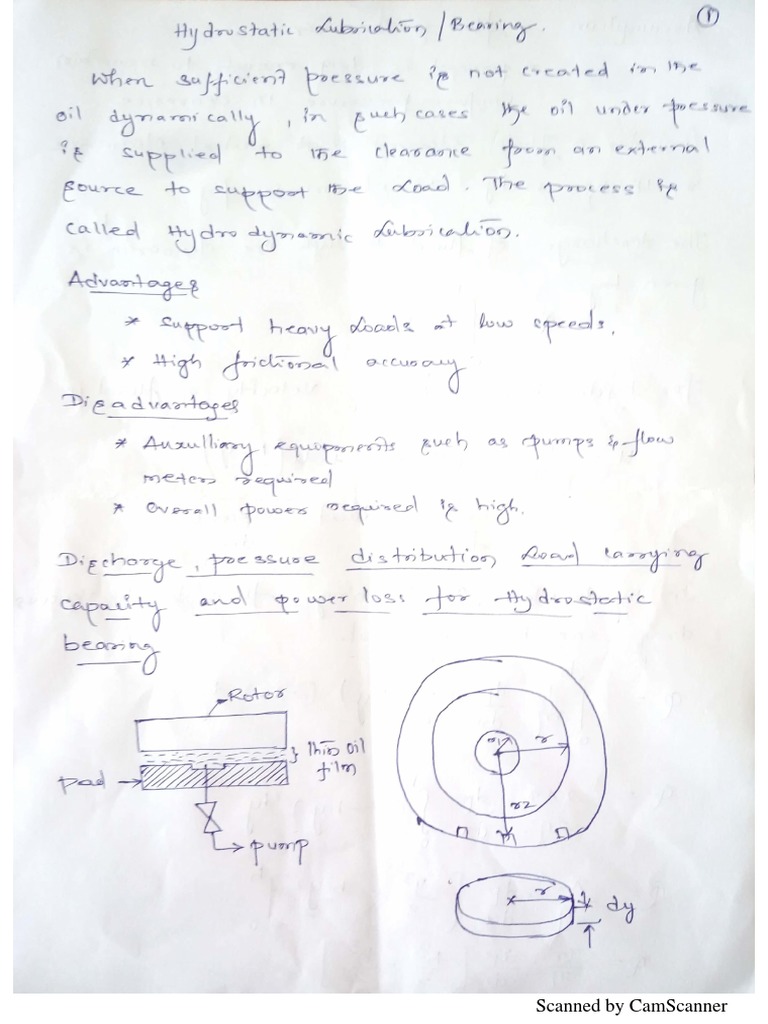 1
Hydrostatic Lubrication / Bearing.
When sufficient pressure is not created in the
oil dynamically, in such cases the oil under pressure
is supplied to the clearance from an external
source to support the Load. The process is
called Hydro dynamic Lubrication.
Advantages
* Support heavy Loads at low speeds.
* High frictional accuracy
Disadvantages
* Auxulliary equipments such as pumps & flow
meters required
* Overall power required is high.
Discharge, pressure distribution Load carrying
capacity and power loss for Hydrostatic
bearing
Rotor
Thin oil
film
pad
pump
r1
r
r2
r
dy
Scanned by CamScanner